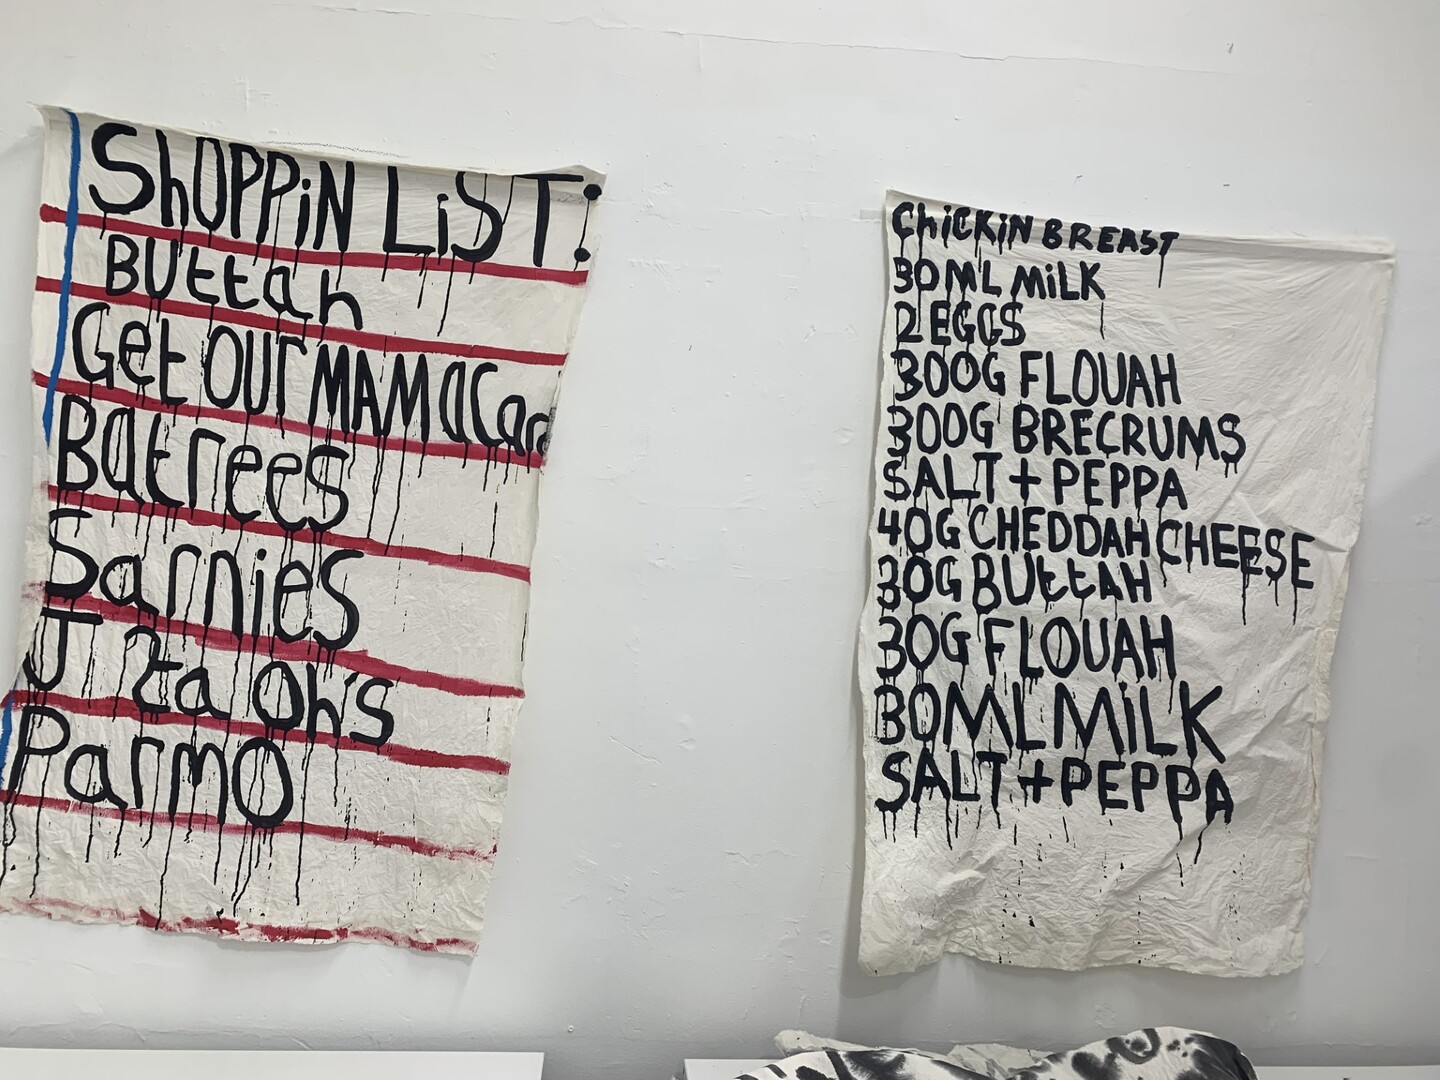 ShOPPiN LiST:
Buttah
Get OUT MAMaCard
Batrees
Sarnies
J 2ta Oh's
ParmO
ChiCKiN BREAST
30ML MiLK
2 EGGS
300G FLOUAH
300G BRECRUMS
SALT + PEPPA
40G CHEDDAH CHEESE
30G BUttAH
30G FLOUAH
30ML MiLK
SALT + PEPPA